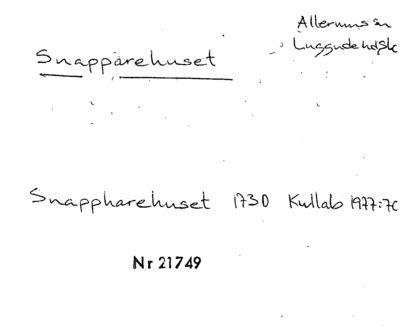 Allerums sn
Luggude hd Sk
Snapparehuset
Snappharehuset 1730 Kullab 1977:70
Nr 21749